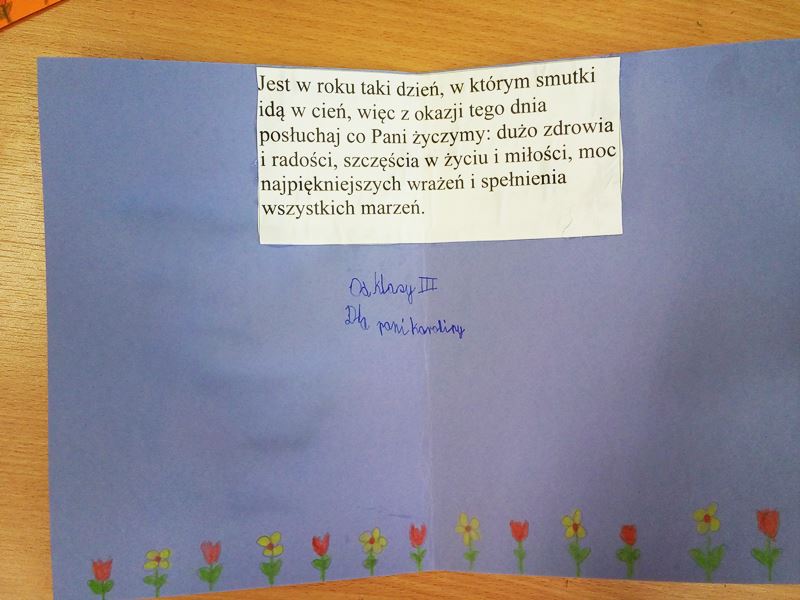 Jest w roku taki dzień, w którym smutki
idą w cień, więc z okazji tego dnia
posłuchaj co Pani życzymy: dużo zdrowia
i radości, szczęścia w życiu i miłości, moc
najpiękniejszych wrażeń i spełnienia
wszystkich marzeń.
Od klasy III
Dla pani karoliny